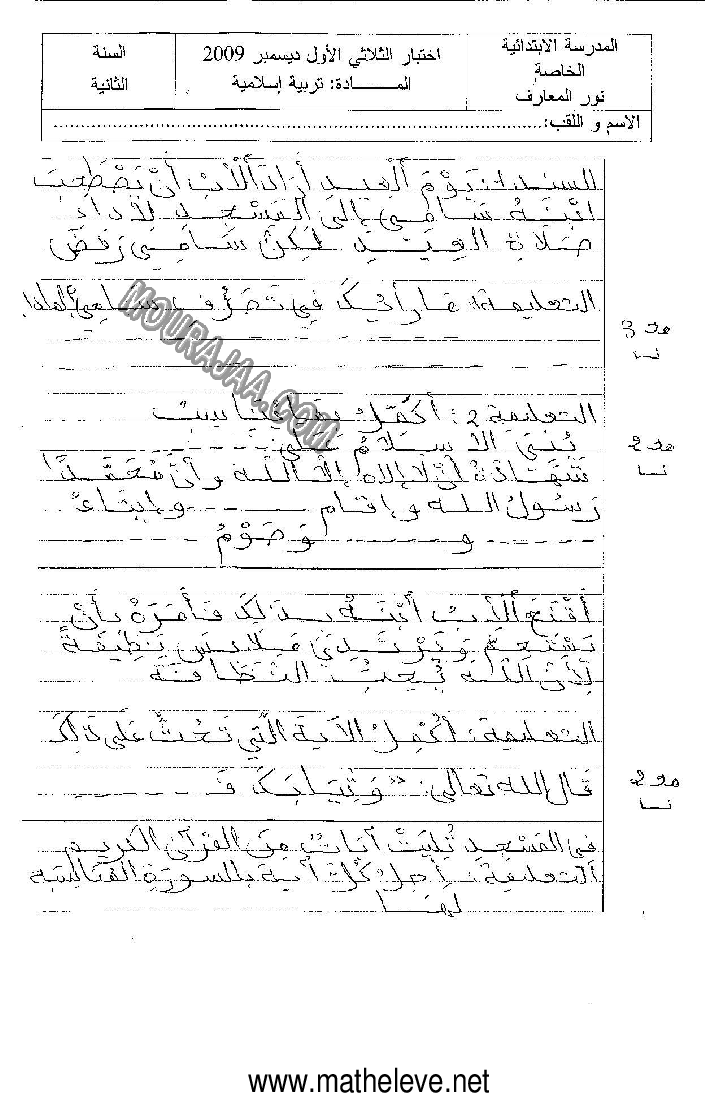 المدرسة الابتدائية
الخاصة
نور المعارف
اختبار الثلاثي الأول ديسمبر 2009
المـــــــادة: تربية إسلامية
السنة
الثانية
الاسم و اللقب:........................................................................
السند 1: يَوْمَ الْعِيدِ أَرَادَ الْأَبُ أَنْ يَصْطَحِبَ
ابْنَهُ سَامِي إِلَى الْمَسْجِدِ لِأَدَاءِ
صَلَاةِ الْعِيدِ لَكِنَّ سَامِي رَفَضَ
التعليمة 1: مَا رَأْيُكَ فِي تَصَرُّفِ سَامِي؟ لماذا؟
مع 3
MOURAJAA.COM
التعليمة 2: أُكْمِلُ بِمَا يُنَاسِبُ
مع 2
بُنِيَ الْإِسْلَامُ عَلَى: - - - - -
شَهَادَةُ أَنْ لَا إِلَاهَ إِلَّا اللَّه وَأَنَّ مُحَمَّدًا
رَسُولُ اللَّه وَإِقَام - - - - - وَإِيتَاءُ
- - - - - - وَ - - - - - - وَصَوْمُ
أَقْنَعَ الْأَبُ ابْنَهُ بِذَلِكَ فَأَمَرَهُ بِأَنْ
يَسْتَحِمَّ وَيَرْتَدِيَ مَلَابِسَ نَظِيفَةً
لِأَنَّ اللَّهَ يُحِبُّ النَّظَافَةَ
التعليمة: أُكْمِلُ الْآيَةَ الَّتِي تَحُثُّ عَلَى ذَلِكَ
قَالَ اللَّه تَعَالَى: "وَثِيَابَكَ فَ - - - - - -
مع 2
فِي الْمَسْجِدِ تُلِيَتْ آيَاتٌ مِنَ الْقُرْآنِ الْكَرِيم
التعليمة: أَصِلُ كُلَّ آيَةٍ بِالسُّورَةِ الْمُنَاسِبَةِ
لَهَا
www.matheleve.net